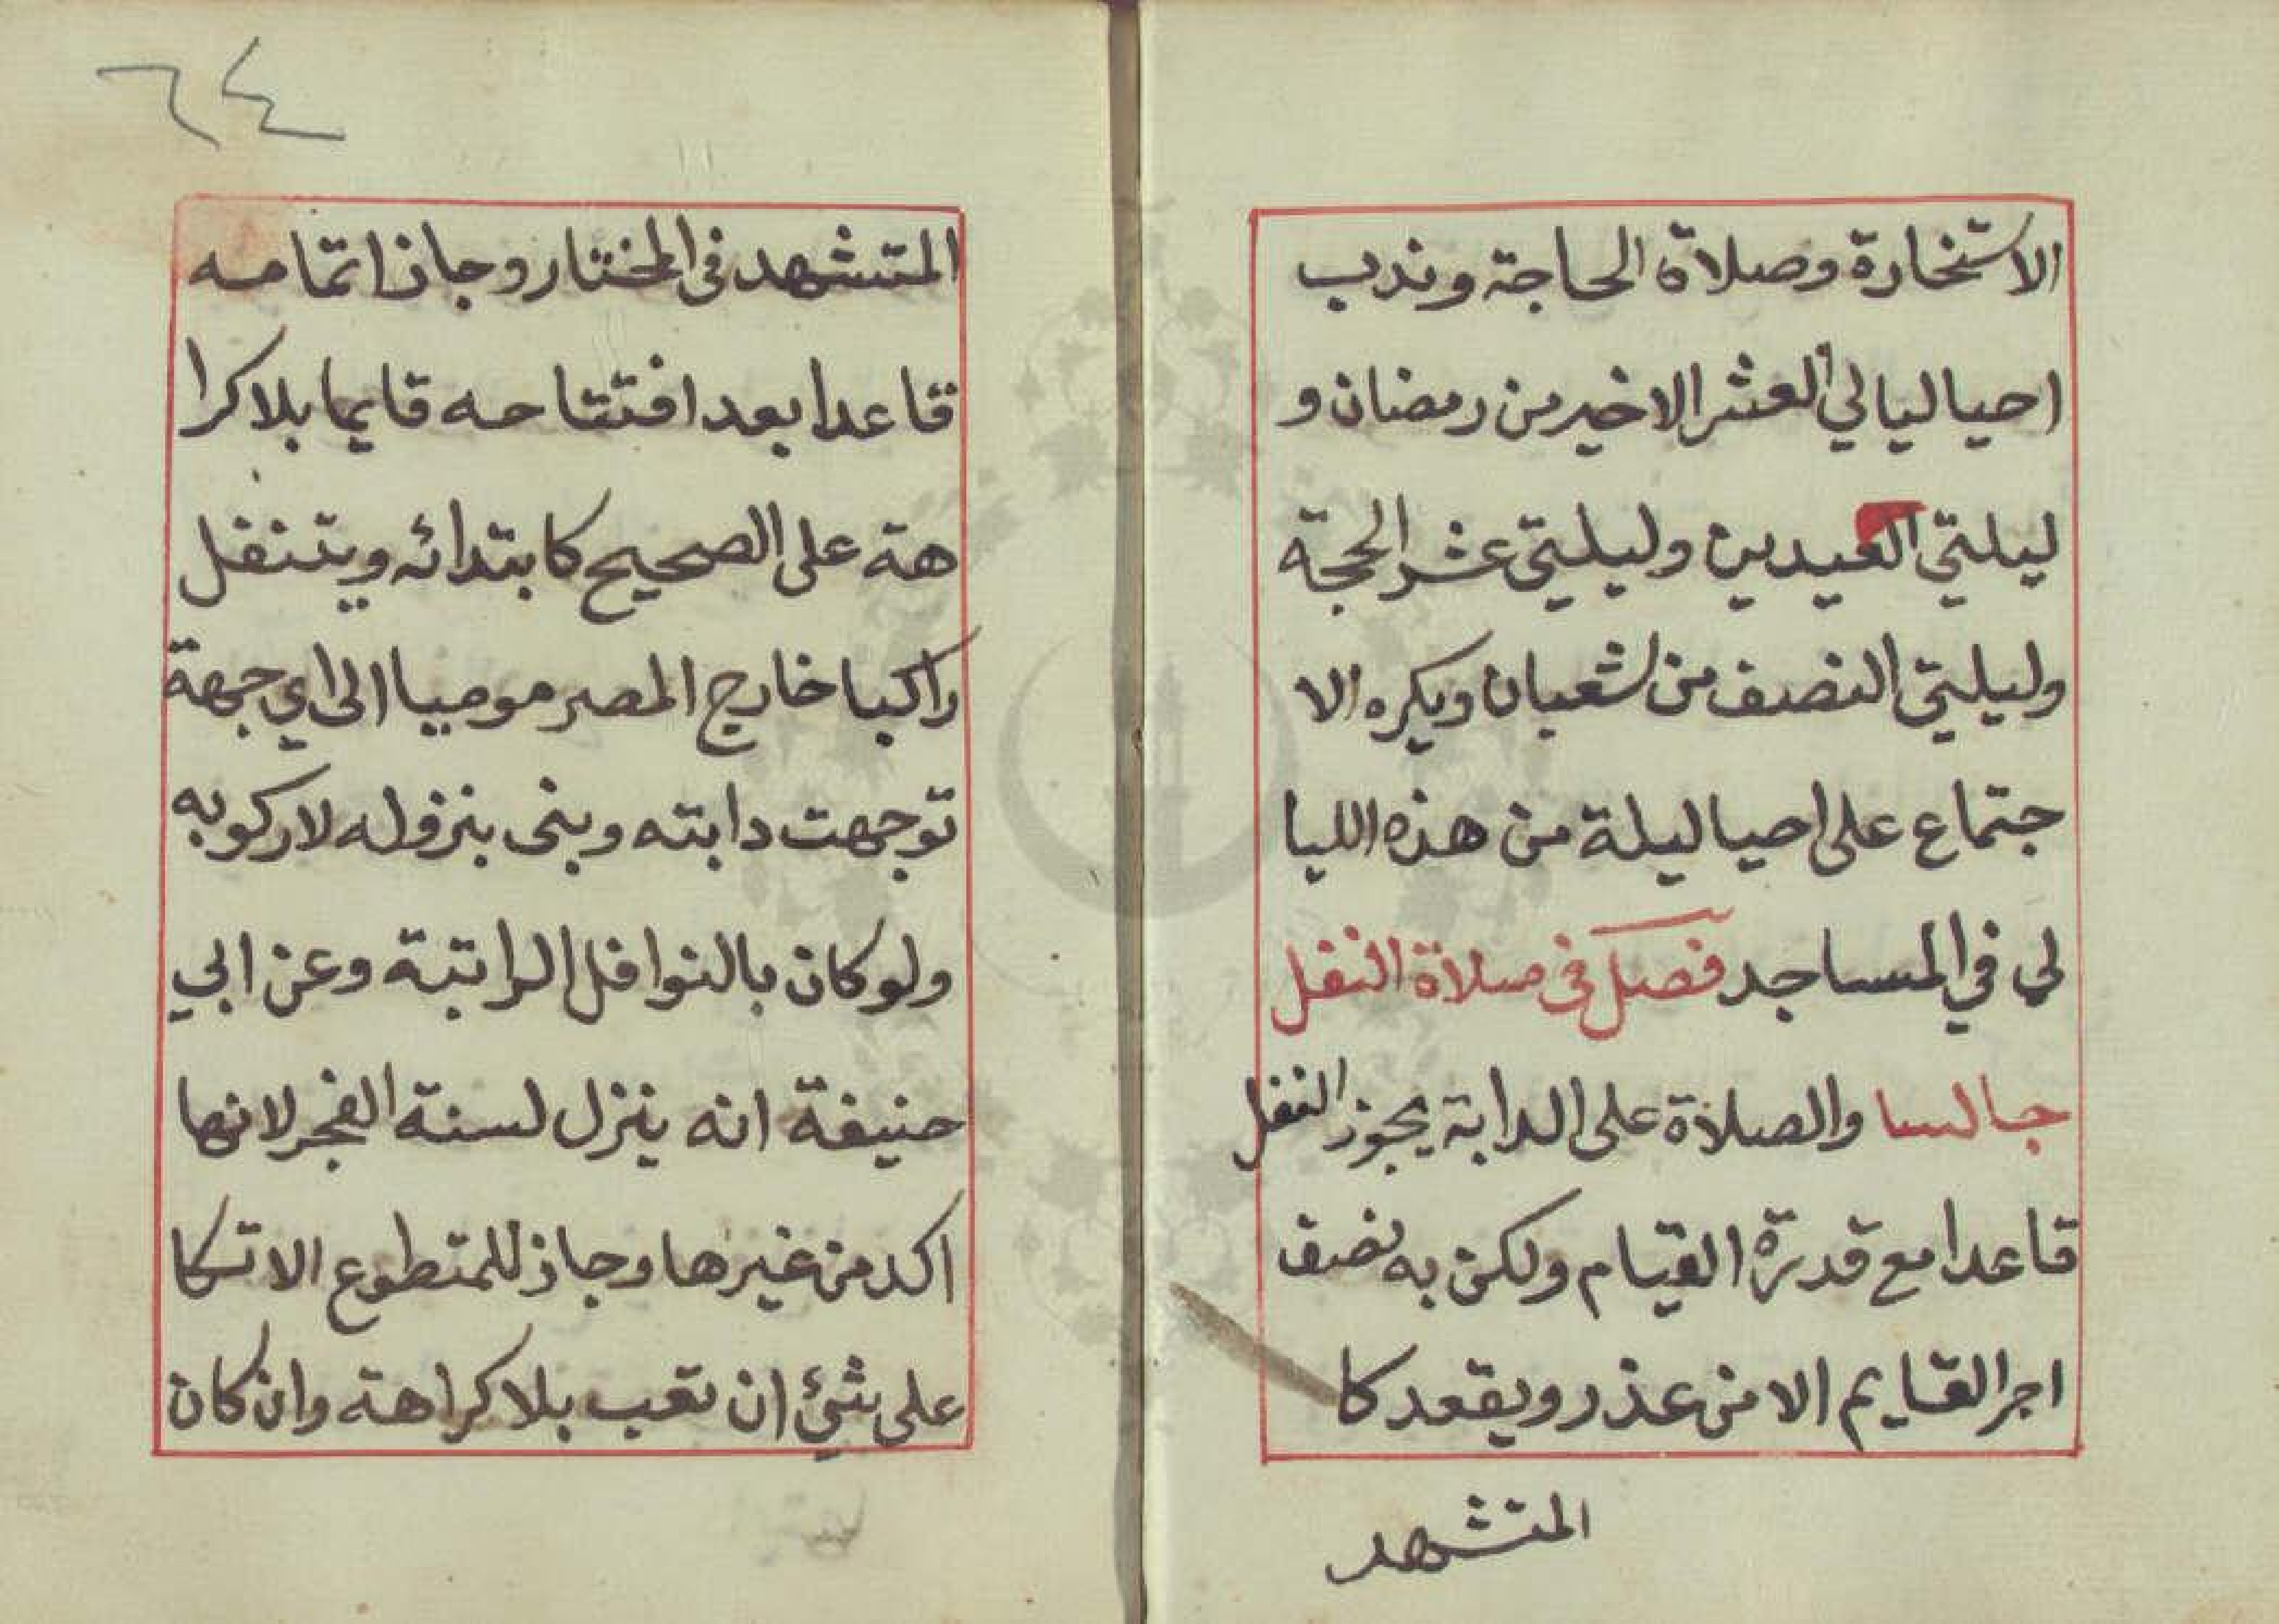 الاستخارة وصلاة الحاجة وندب
احيا ليالي العشر الاخير من رمضان و
ليلتي العيدين وليليتي عشر الحجة
وليليتي النصف من شعبان ويكره الا
جتماع على احيا ليلة من هذه الليا
لي في المساجد فصل في صلاة النفل
جالسا والصلاة على الدابة يجوز النفل
قاعدا مع قدرة القيام ولكن به نصف
اجر القايم الا من عذر ويقعد كا
المتشهد
٦٤
المتشهد في المختار وجاز اتمامه
قاعدا بعد افتتاحه قايما بلا كرا
هة على الصحيح كابتدائه ويتنفل
راكبا خارج المصر موميا الى اي جهة
توجهت دابته وبنى بنزوله لا ركوبه
ولو كان بالنوافل الراتبة وعن ابي
حنيفة انه ينزل لسنة الفجر لانها
اكد من غيرها وجاز للمتطوع الاتكا
على شئ ان تعب بلا كراهة وان كان